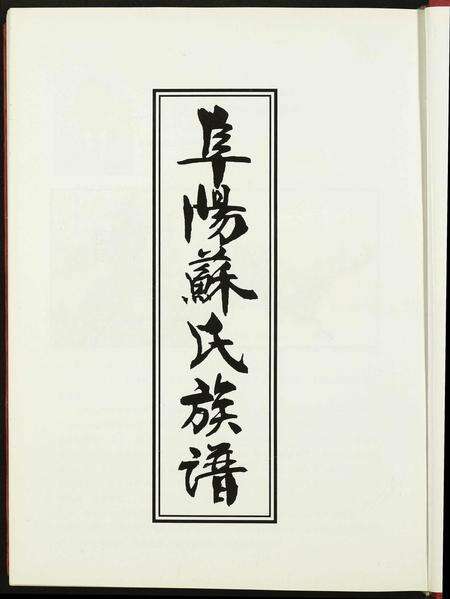 阜陽蘇氏族谱